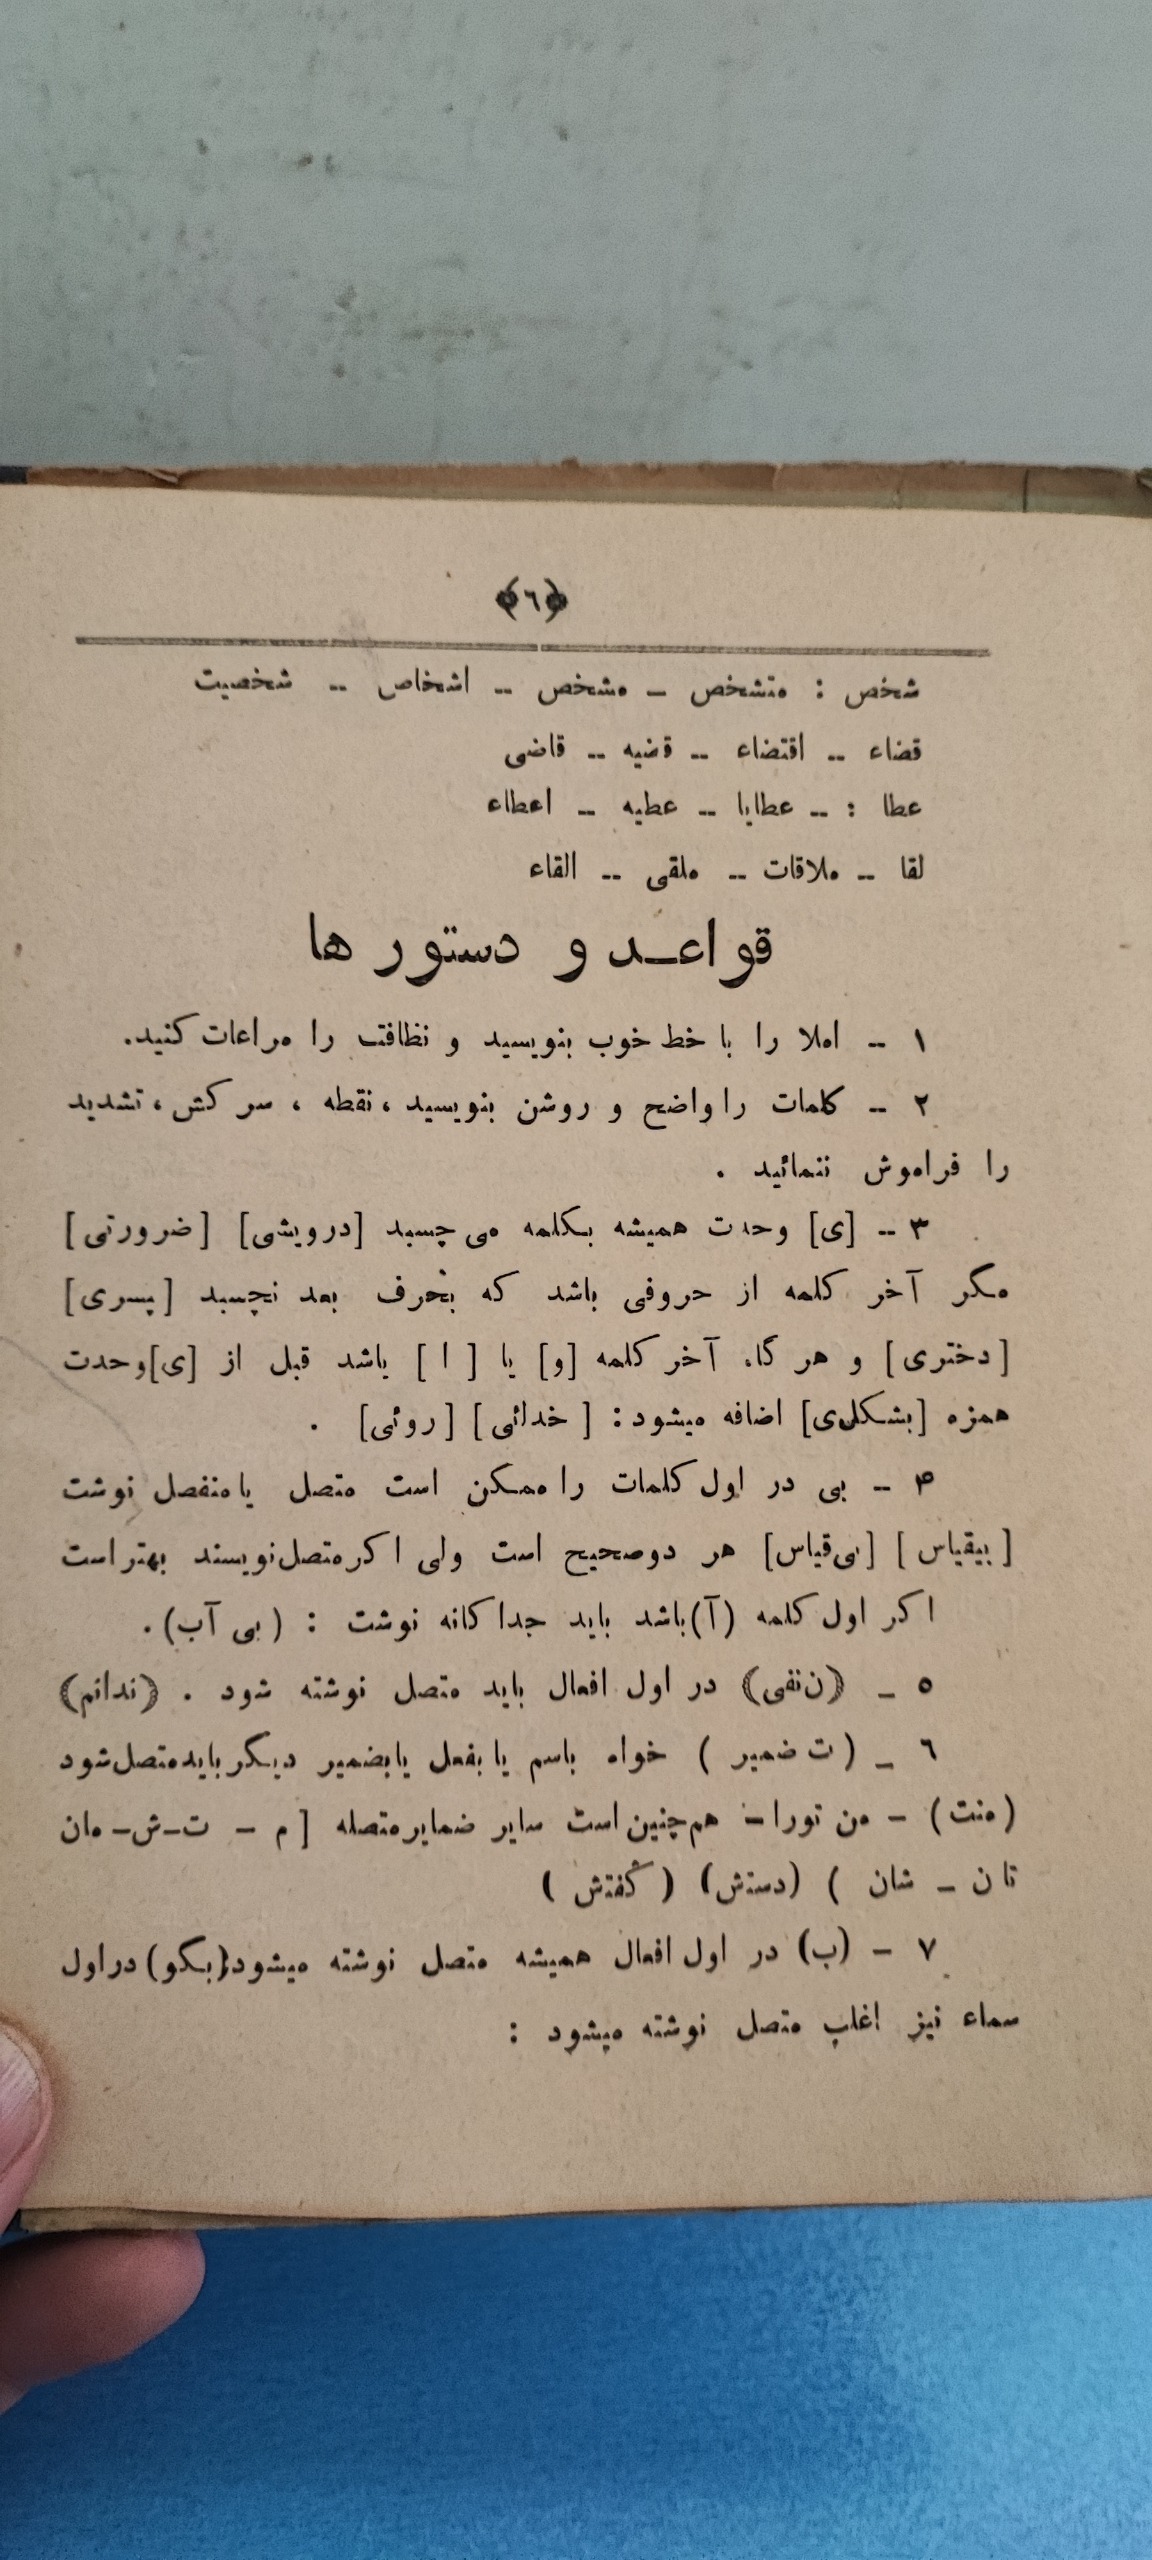 ﴿٦﴾
شخص : متشخص ــ مشخص ــ اشخاص ــ شخصیت
قضاء ــ اقتضاء ــ قضیه ــ قاضی
عطا : ــ عطایا ــ عطیه ــ اعطاء
لقا ــ ملاقات ــ ملقی ــ القاء
قواعد و دستور ها
۱ ــ املا را با خط خوب بنویسید و نظافت را مراعات کنید.
۲ ــ کلمات را واضح و روشن بنویسید ، نقطه ، سرکش ، تشدید
را فراموش ننمائید .
۳ ــ [ی] وحدت همیشه بکلمه می چسبد [درویشی] [ضرورتی]
مگر آخر کلمه از حروفی باشد که بحرف بعد نچسبد [پسری]
[دختری] و هر گاه آخر کلمه [و] یا [ ا ] باشد قبل از [ی] وحدت
همزه [بشکلی] اضافه میشود : [ خدائی ] [روئی] .
۴ ــ بی در اول کلمات را ممکن است متصل یا منفصل نوشت
[ بیقیاس ] [بی‌قیاس] هر دو صحیح است ولی اکر متصل نویسند بهتر است
اکر اول کلمه (آ) باشد باید جداکانه نوشت : (بی آب) .
۵ ــ (ن نفی) در اول افعال باید متصل نوشته شود . (ندانم)
٦ ــ (ت ضمیر ) خواه باسم یا بفعل یا بضمیر دیکر باید متصل شود
(منت) ــ من تورا ــ هم چنین است سایر ضمایر متصله [ م ــ ت ــ ش ــ مان
تان ــ شان ) (دستش) ( گفتش )
۷ ــ (ب) در اول افعال همیشه متصل نوشته میشود (بکو) در اول
سماء نیز اغلب متصل نوشته میشود :